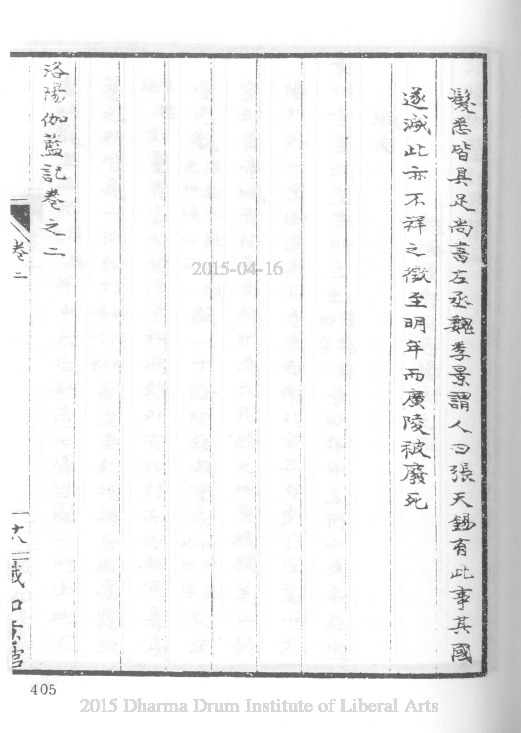 髮悉皆具足尚書左丞魏季景謂人曰張天錫有此事其國
遂滅此亦不祥之徵至明年而廣陵被廢死
洛陽伽藍記卷之二
卷二
十八
405
2015-04-16
2015 Dharma Drum Institute of Liberal Arts